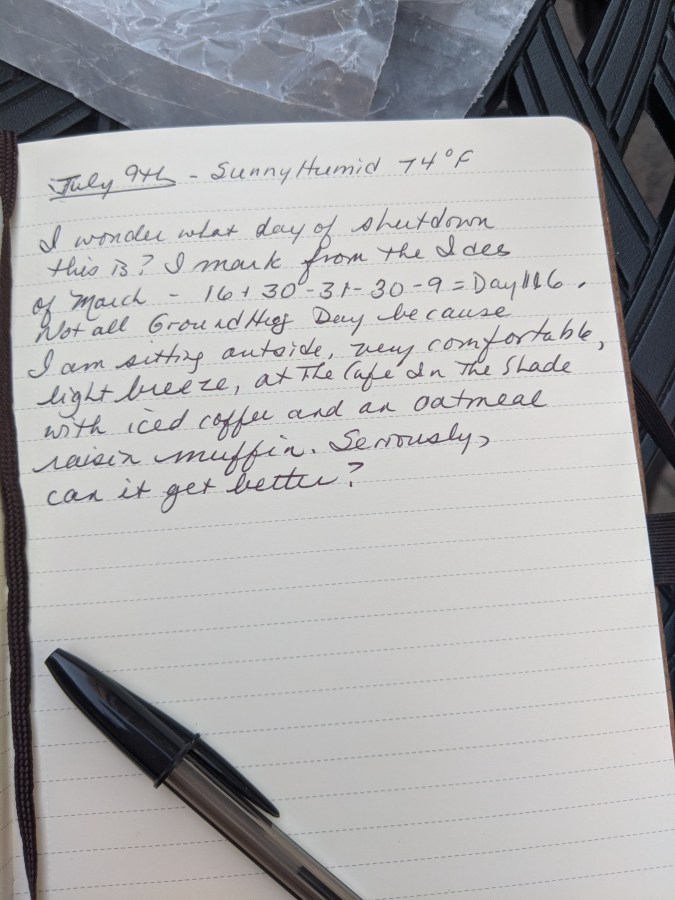 July 9th - Sunny Humid 74°F
I wonder what day of shutdown
this is? I mark from the Ides
of March - 16+30-31-30-9=Day 116.
Not all GroundHog Day because
I am sitting outside, very comfortable,
light breeze, at The Cafe In The Shade
with iced coffee and an oatmeal
raisin muffin. Seriously,
can it get better?